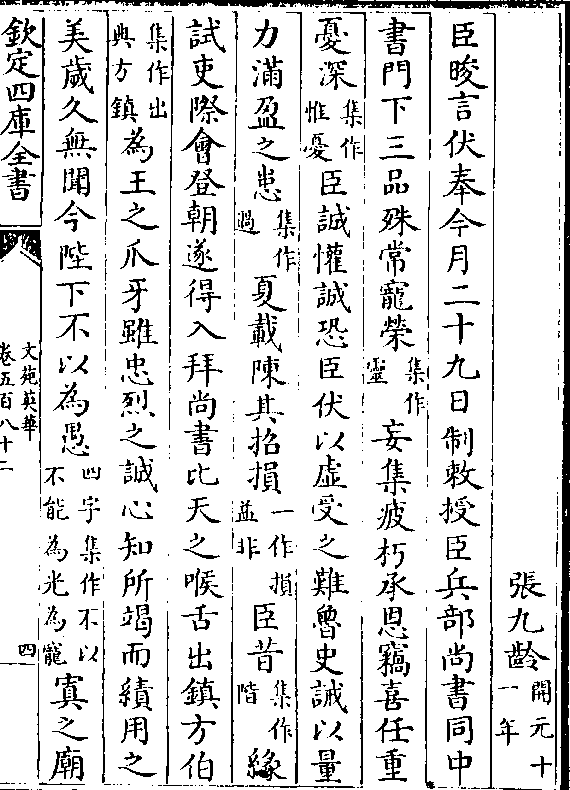 張九齡開元十一年
臣晙言伏奉今月二十九日制敕授臣兵部尚書同中
書門下三品殊常寵榮集作靈妄集疲朽承恩竊喜任重
憂深集作惟憂臣誠懽誠恐臣伏以虛受之難魯史誡以量
力滿盈之患集作過夏載陳其招損一作損益非臣昔集作階緣
試吏際會登朝遂得入拜尚書比天之喉舌出鎮方伯
集作出典方鎮為王之爪牙雖忠烈之誠心知所竭而績用之
美歲久無聞今陛下不以為愚四字集作不以不能為光為寵寘之廟
欽定四庫全書
文苑英華
卷五百八十二
四